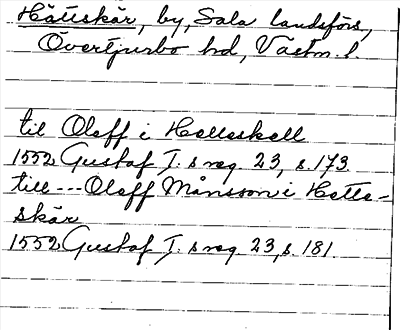 Hättskär, by, Sala landsförs,
Övertjurbo hd, Västm. l.
til Oleff i Helleskell
1552 Gustaf I. s reg. 23, s. 173.
till --- Oleff Månsson i Hette-
skär
1552 Gustaf I. s reg. 23, s. 181.